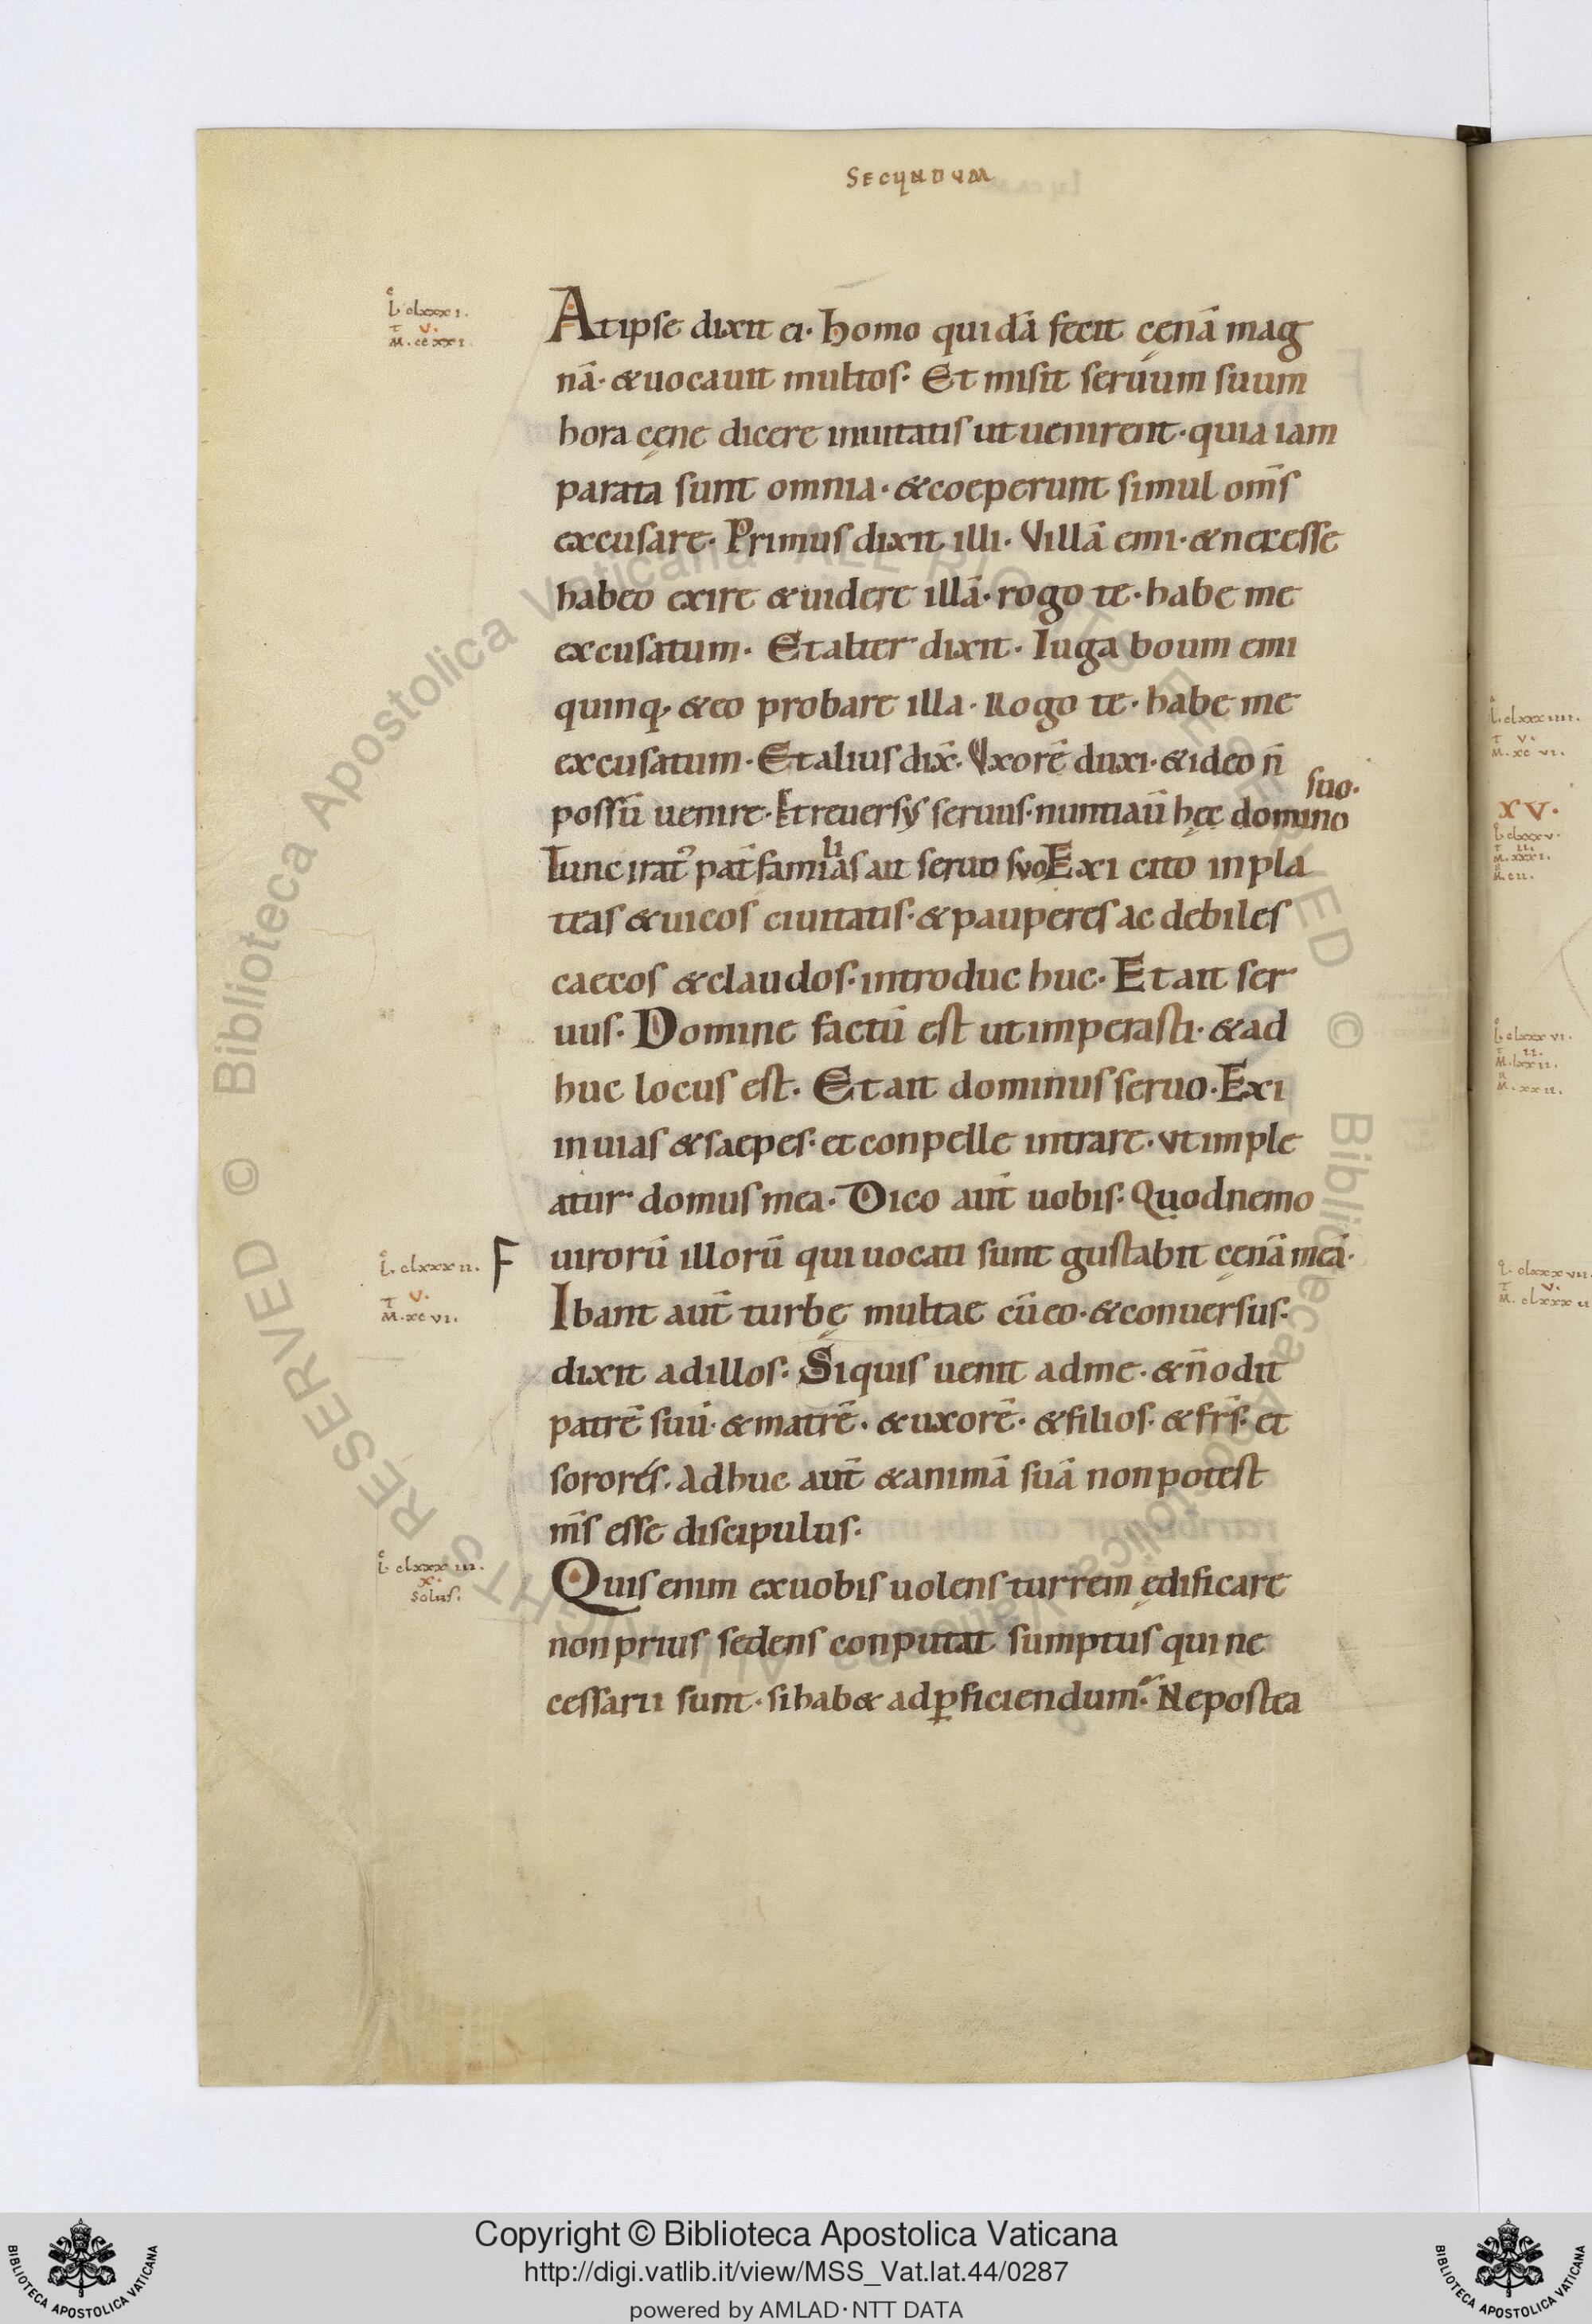 SECUNDUM
L clxxxi.
T v.
M. ccxxi
At ipse dixit ei· homo quidā fecit cęnā mag
nā· & uocauit multos· Et misit seruum suum
hora cęne dicere inuitatis ut uenirent· quia iam
parata sunt omnia· & coeperunt simul om̄s
excusare· Primus dixit illi· Villā emi· & necesse
habeo exire & uidere illā· rogo te· habe me
excusatum· Et alter dixit· Iuga boum emi
quinq· & eo probare illa· Rogo te· habe me
excusatum· Et alius dix̄· Vxorē duxi· & ideo n̄
suo·
possū uenire· Et reuersus seruus· nuntiaū hęc domino
li
Tunc irat᾿ pat̄ famias ait seruo suo Exi cito in pla
teas & uicos ciuitatis· & pauperes ac debiles
caecos & claudos· introduc huc· Et ait ser
uus· Domine factū est ut imperasti· & ad
huc locus est· Et ait dominus seruo· Exi
in uias & saepes· et conpelle intrare· vt imple
atur domus mea· Dico aut̄ uobis· Quod nemo
L. clxxxii.
F
uirorū illorū qui uocati sunt gustabit cęnā meā·
T v.
M. xcvi.
Ibant aut̄ turbę multae cū eo· & conuersus·
dixit ad illos· Si quis uenit ad me· & n̄ odit
patrē suū· & matrē· & uxorē· & filios· & fr̄s· et
sorores· Adhuc aut̄ & animā suā non potest
m̄s esse discipulus·
L clxxxiii.
x.
Solus.
Quis enim ex uobis uolens turrem ędificare
non prius sedens conputat sumptus qui ne
cessarii sunt· si hab& ad ꝑficiendum· Ne postea
L. clxxxiiii.
T v.
M. xcvi.
XV.
L clxxxv.
T ii.
M. xxxi.
M. cii.
L clxxxvi.
T ii.
M. lxxii.
M. xxii.
L. clxxxvii
T v.
M. clxxxii
© Biblioteca Apostolica Vaticana ALL RIGHTS RESERVED © Biblioteca Apostolica Vaticana ALL RIGHTS RESERVED
Copyright © Biblioteca Apostolica Vaticana
http://digi.vatlib.it/view/MSS_Vat.lat.44/0287
powered by AMLAD·NTT DATA
BIBLIOTECA APOSTOLICA VATICANA
BIBLIOTECA APOSTOLICA VATICANA